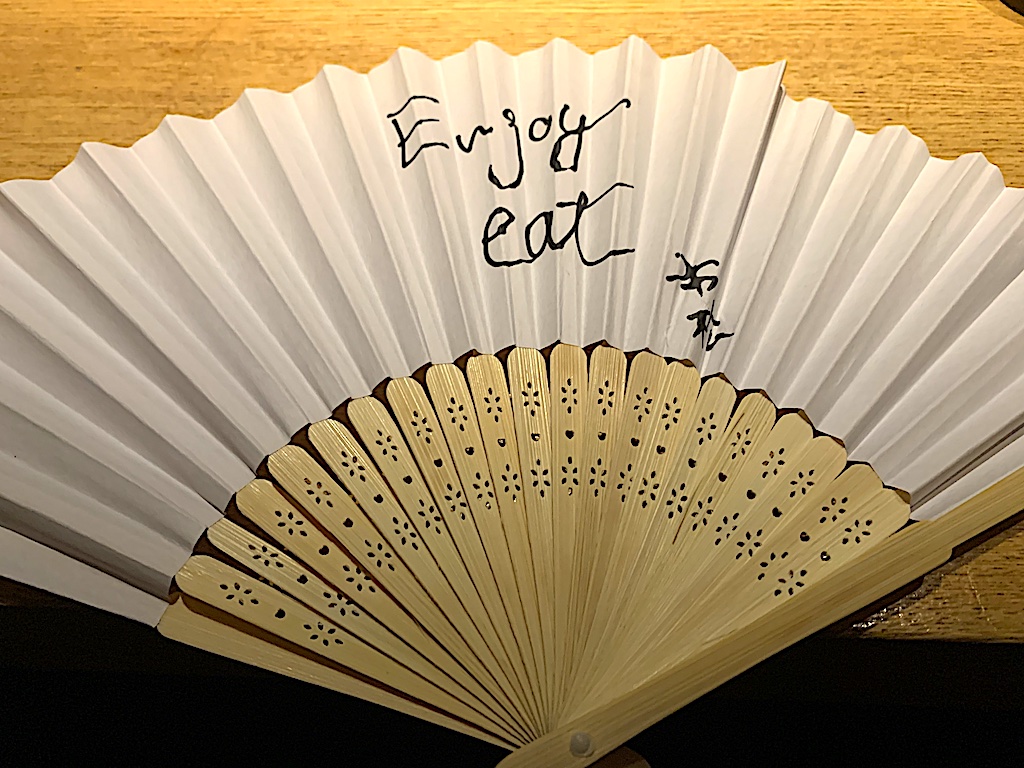 Enjoy
eat